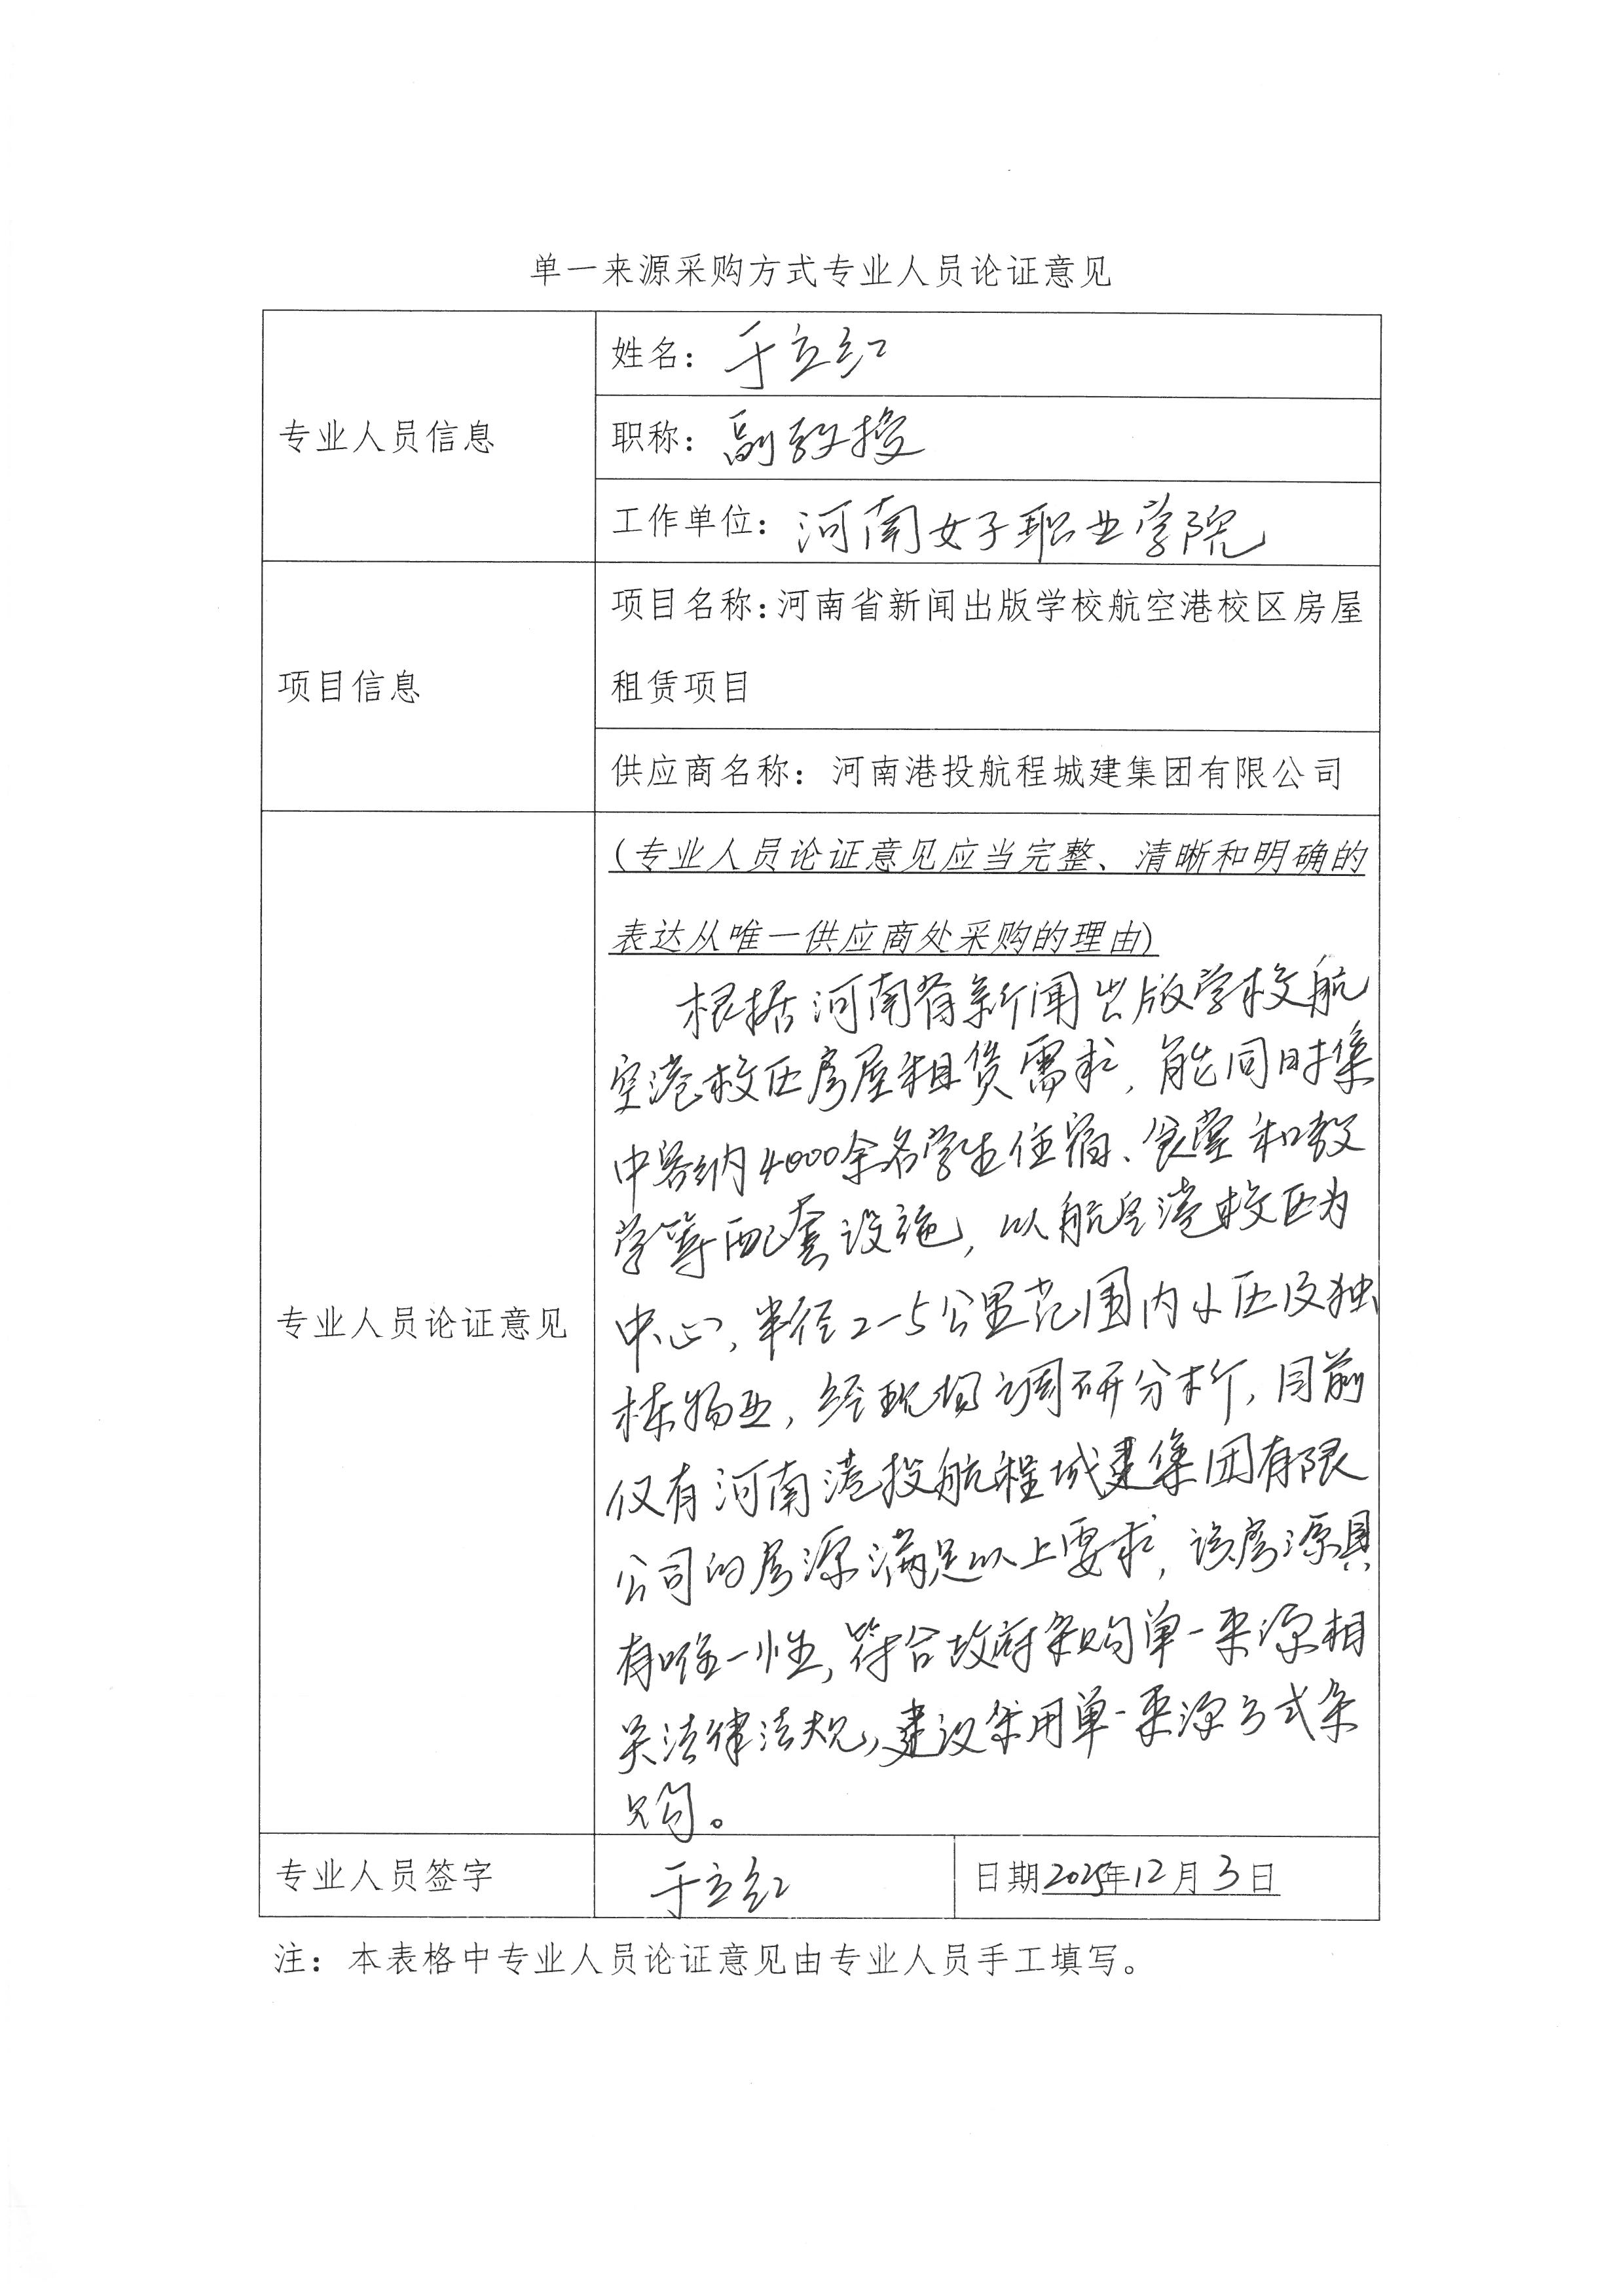 单一来源采购方式专业人员论证意见
专业人员信息
姓名：于立红
职称：副教授
工作单位：河南女子职业学院
项目信息
项目名称：河南省新闻出版学校航空港校区房屋
租赁项目
供应商名称：河南港投航程城建集团有限公司
专业人员论证意见
（专业人员论证意见应当完整、清晰和明确的
表达从唯一供应商处采购的理由）
根据河南省新闻出版学校航
空港校区房屋租赁需求，能同时集
中容纳4000余名学生住宿、食堂和教
学等配套设施，以航空港校区为
中心，半径2-5公里范围内小区及独
栋物业，经现场调研分析，目前
仅有河南港投航程城建集团有限
公司的房源满足以上要求，该房源具
有唯一性，符合政府采购单一来源相
关法律法规，建议采用单一来源方式采
购。
专业人员签字
于立红
日期2025年12月3日
注：本表格中专业人员论证意见由专业人员手工填写。